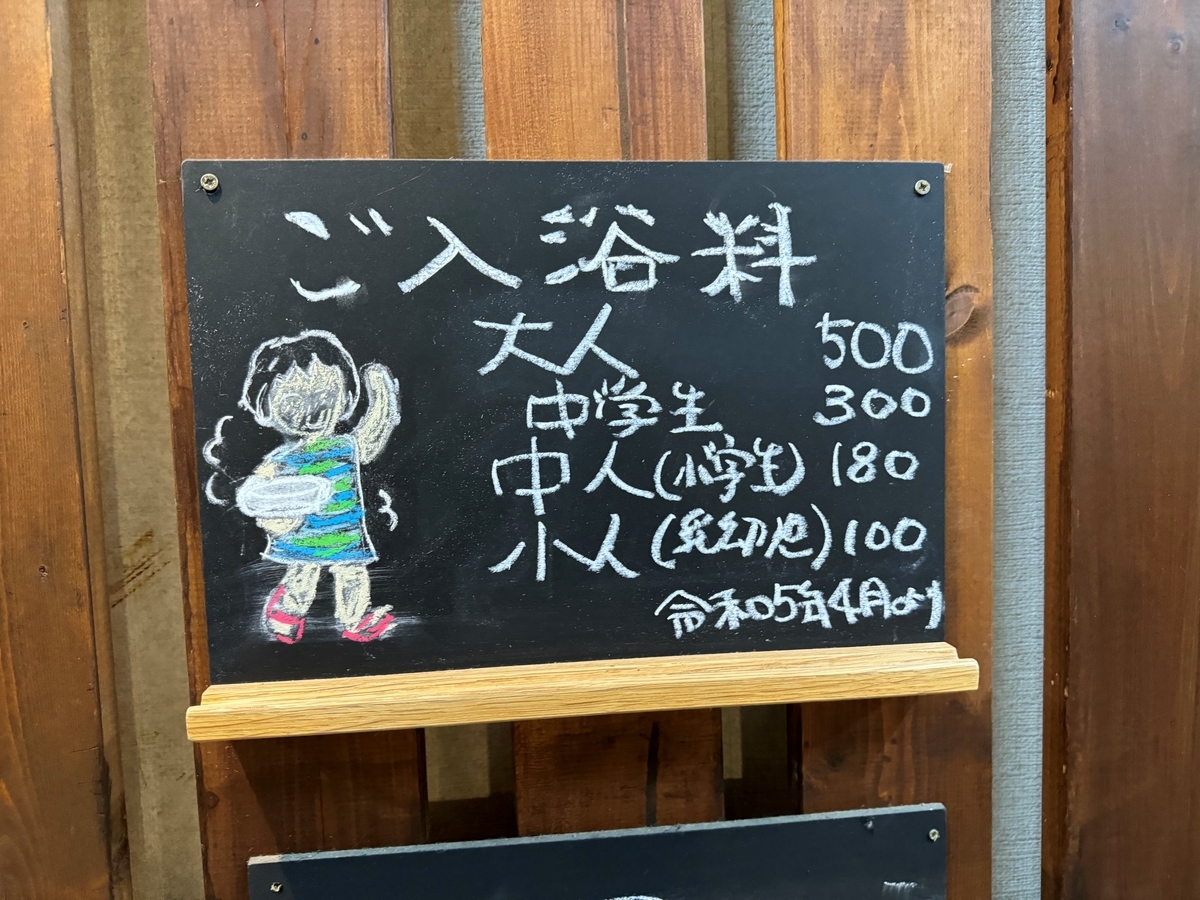 ご入浴料
大人 500
中学生 300
中人(小学生) 180
小人(乳幼児) 100
令和05年4月より